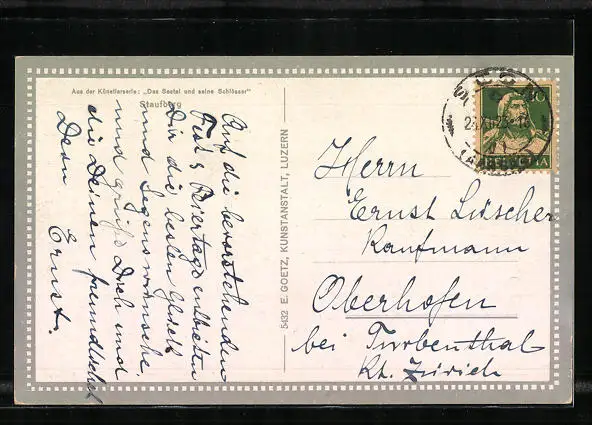 Aus der Künstlerserie: „Das Seetal und seine Schlösser"
Staufberg
Auf die bevorstehenden
Fest & Feiertage entbieten
Dir die besten Glück
und Segenswünsche
und grüßt Dich und
die Deinen freundlichst
Dein
Ernst.
5432 E. GOETZ, KUNSTANSTALT, LUZERN
10
HELVETIA
Herrn
Ernst Lüscher
Kaufmann
Oberhofen
bei Turbenthal
Kt. Zürich